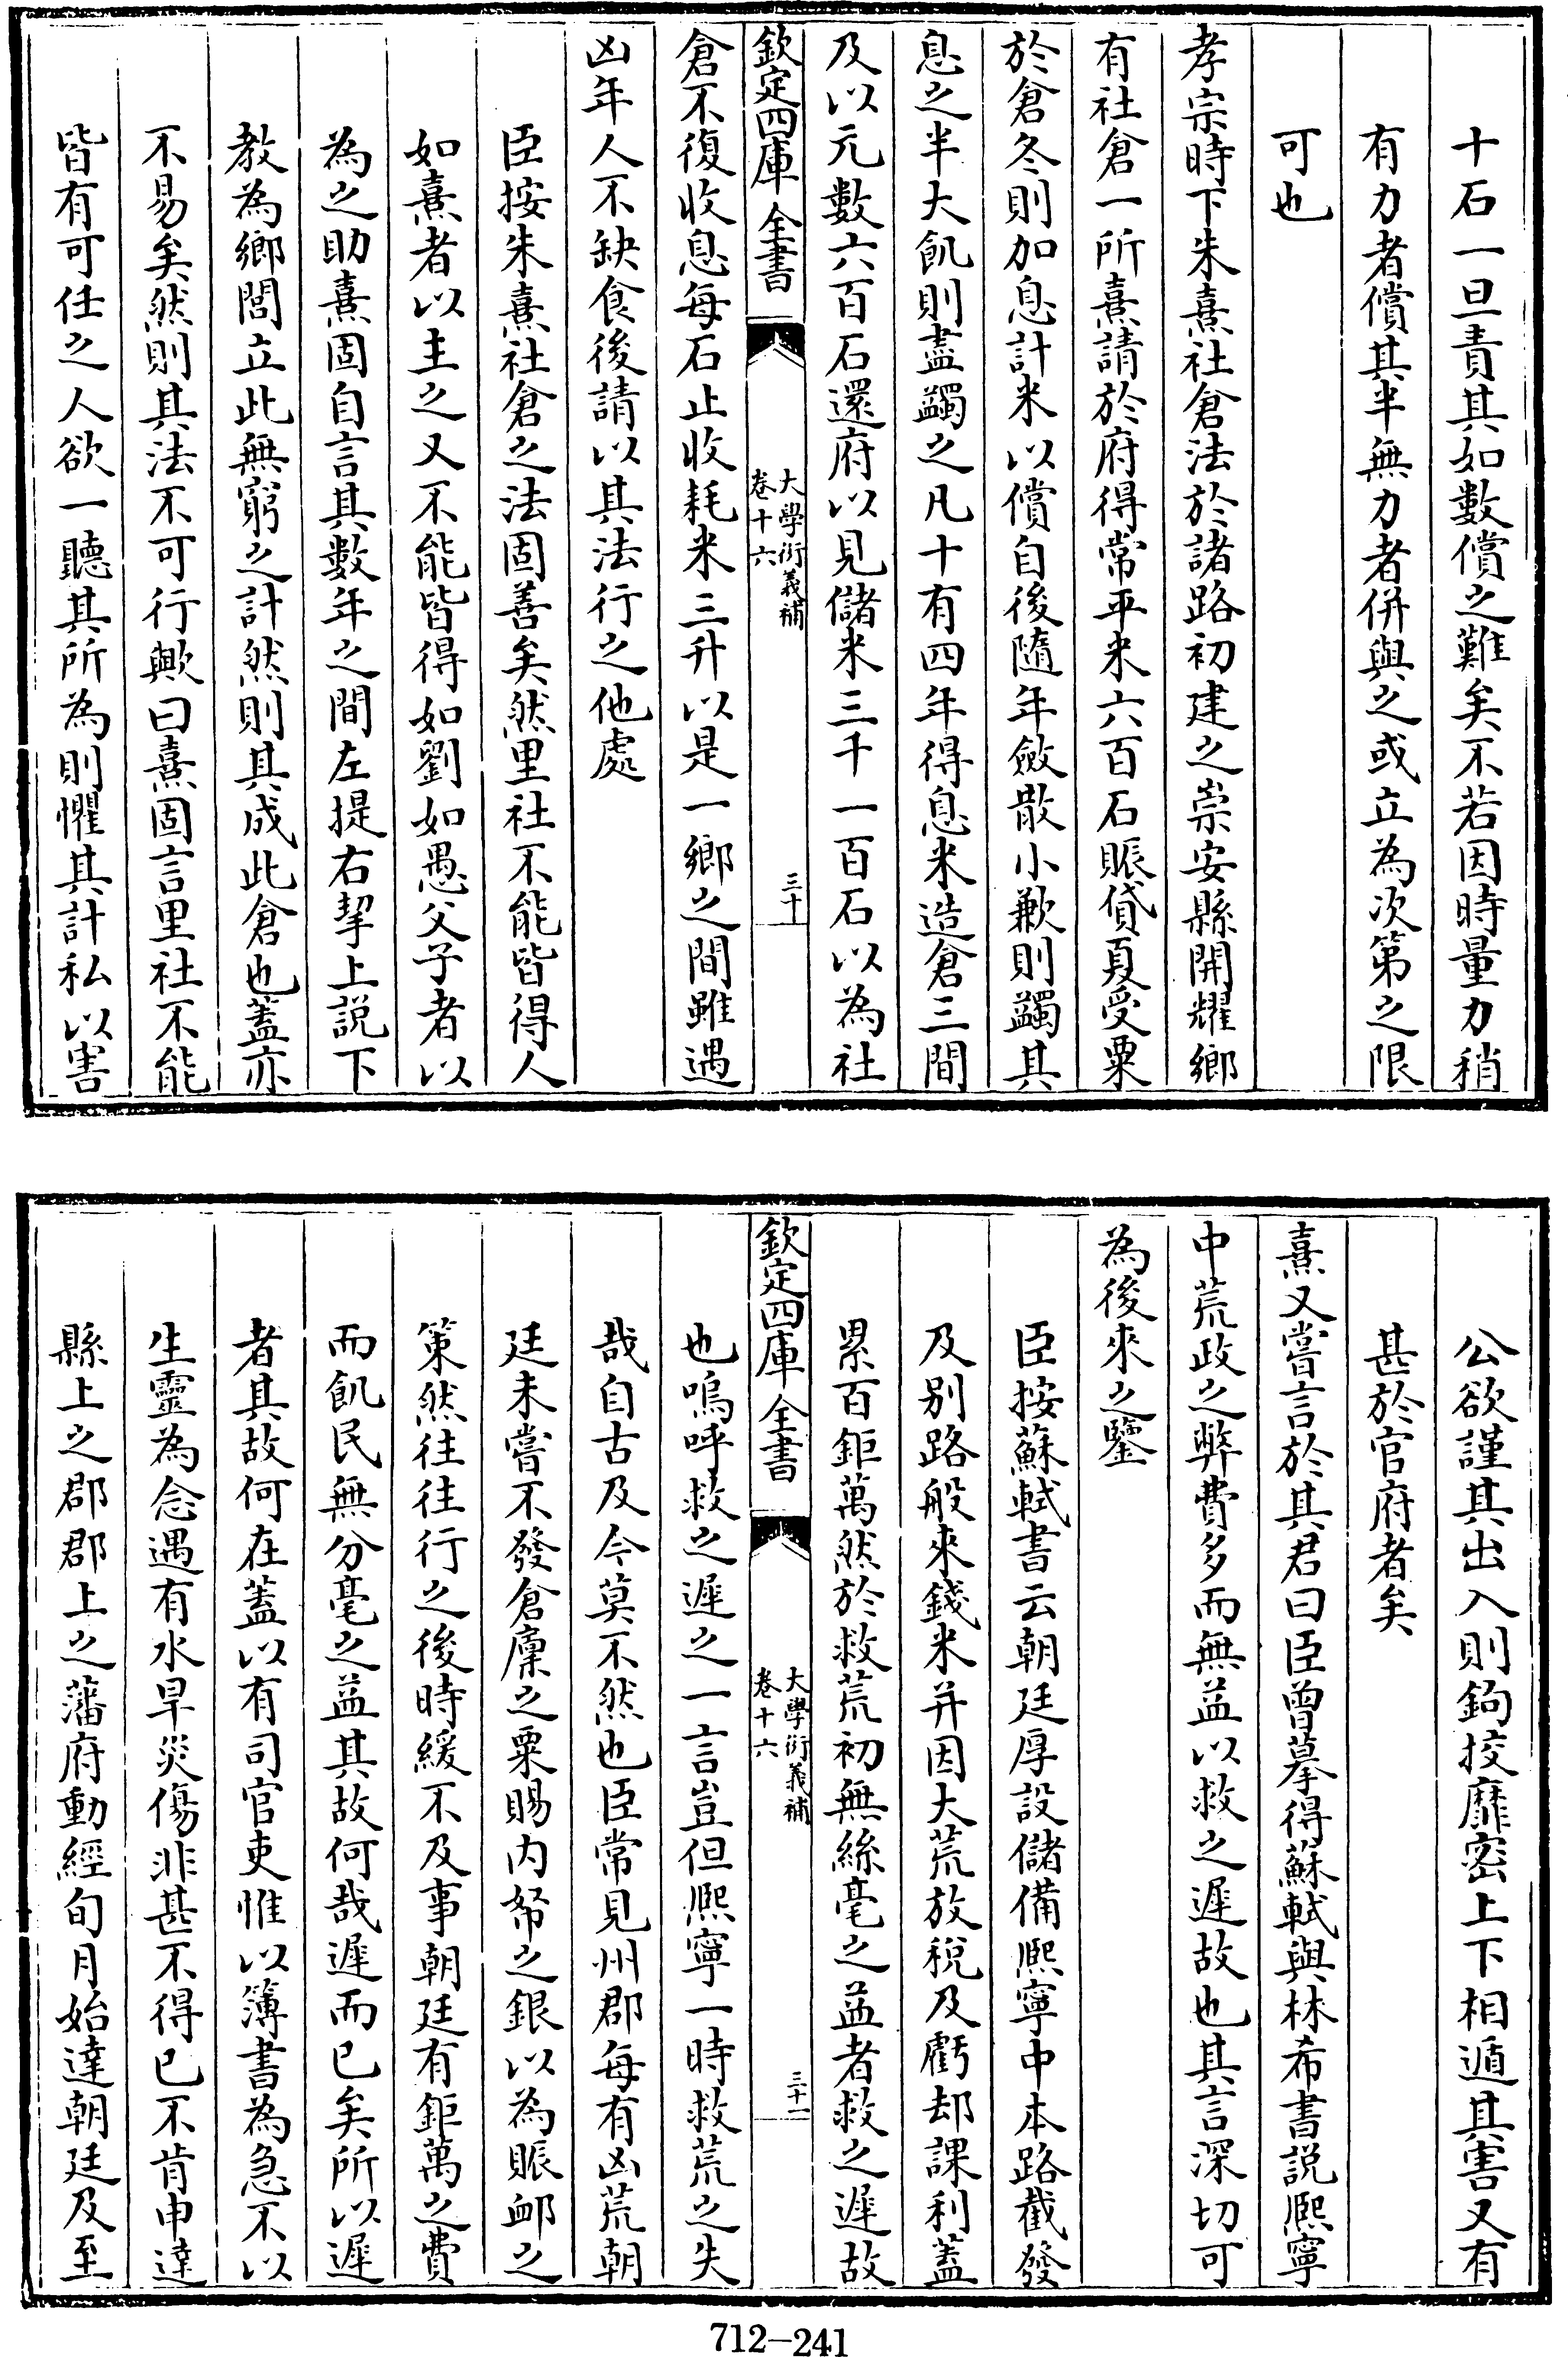 十石一旦責其如數償之難矣不若因時量力稍
有力者償其半無力者併與之或立為次第之限
可也
孝宗時下朱熹社倉法於諸路初建之崇安縣開耀鄉
有社倉一所熹請於府得常平米六百石賑貸夏受粟
於倉冬則加息計米以償自後隨年斂散小歉則蠲其
息之半大飢則盡蠲之凡十有四年得息米造倉三間
及以元數六百石還府以見儲米三千一百石以為社
欽定四庫全書
大學衍義補
卷十六
三十
倉不復收息每石止收耗米三升以是一鄉之間雖遇
凶年人不缺食後請以其法行之他處
臣按朱熹社倉之法固善矣然里社不能皆得人
如熹者以主之又不能皆得如劉如愚父子者以
為之助熹固自言其數年之間左提右挈上説下
教為鄉閭立此無窮之計然則其成此倉也蓋亦
不易矣然則其法不可行歟曰熹固言里社不能
皆有可任之人欲一聽其所為則懼其計私以害
公欲謹其出入則鉤挍靡密上下相遁其害又有
甚於官府者矣
熹又嘗言於其君曰臣曾摹得蘇軾與林希書説熙寧
中荒政之弊費多而無益以救之遲故也其言深切可
為後來之鑒
臣按蘇軾書云朝廷厚設儲備熙寧中本路截發
及别路般來錢米并因大荒放稅及虧却課利蓋
累百鉅萬然於救荒初無絲毫之益者救之遲故
欽定四庫全書
大學衍義補
卷十六
三十一
也嗚呼救之遲之一言豈但熙寧一時救荒之失
哉自古及今莫不然也臣常見州郡每有凶荒朝
廷未嘗不發倉廩之粟賜内帑之銀以為賑䘏之
策然往往行之後時緩不及事朝廷有鉅萬之費
而飢民無分毫之益其故何哉遲而已矣所以遲
者其故何在蓋以有司官吏惟以簿書為急不以
生靈為念遇有水旱災傷非甚不得已不肯申達
縣上之郡郡上之藩府動經旬月始達朝廷及至
712-241